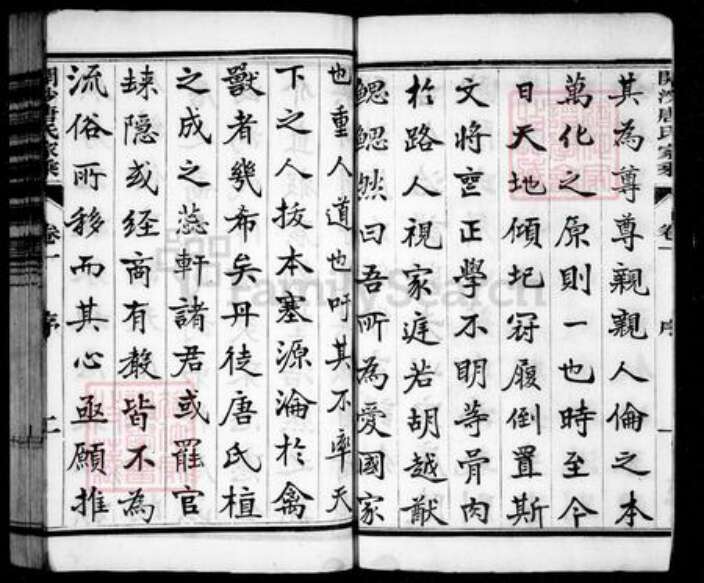 其為尊尊親親人倫之本
萬化之原則一也時至今
日天地傾圮冠履倒置斯
文將喪正學不明等骨肉
於路人視家庭若胡越猷
鰓鰓然曰吾所為愛國家
也重人道也吁其不率天
下之人拔本塞源淪於禽
獸者幾希矣丹徒唐氏植
之成之蕊軒諸君或罷官
歸隱或經商有聲皆不為
流俗所移而其心亟願推
開沙唐氏家乘
卷一
序
一
開沙唐氏家乘
卷一
序
二
FamilySearch